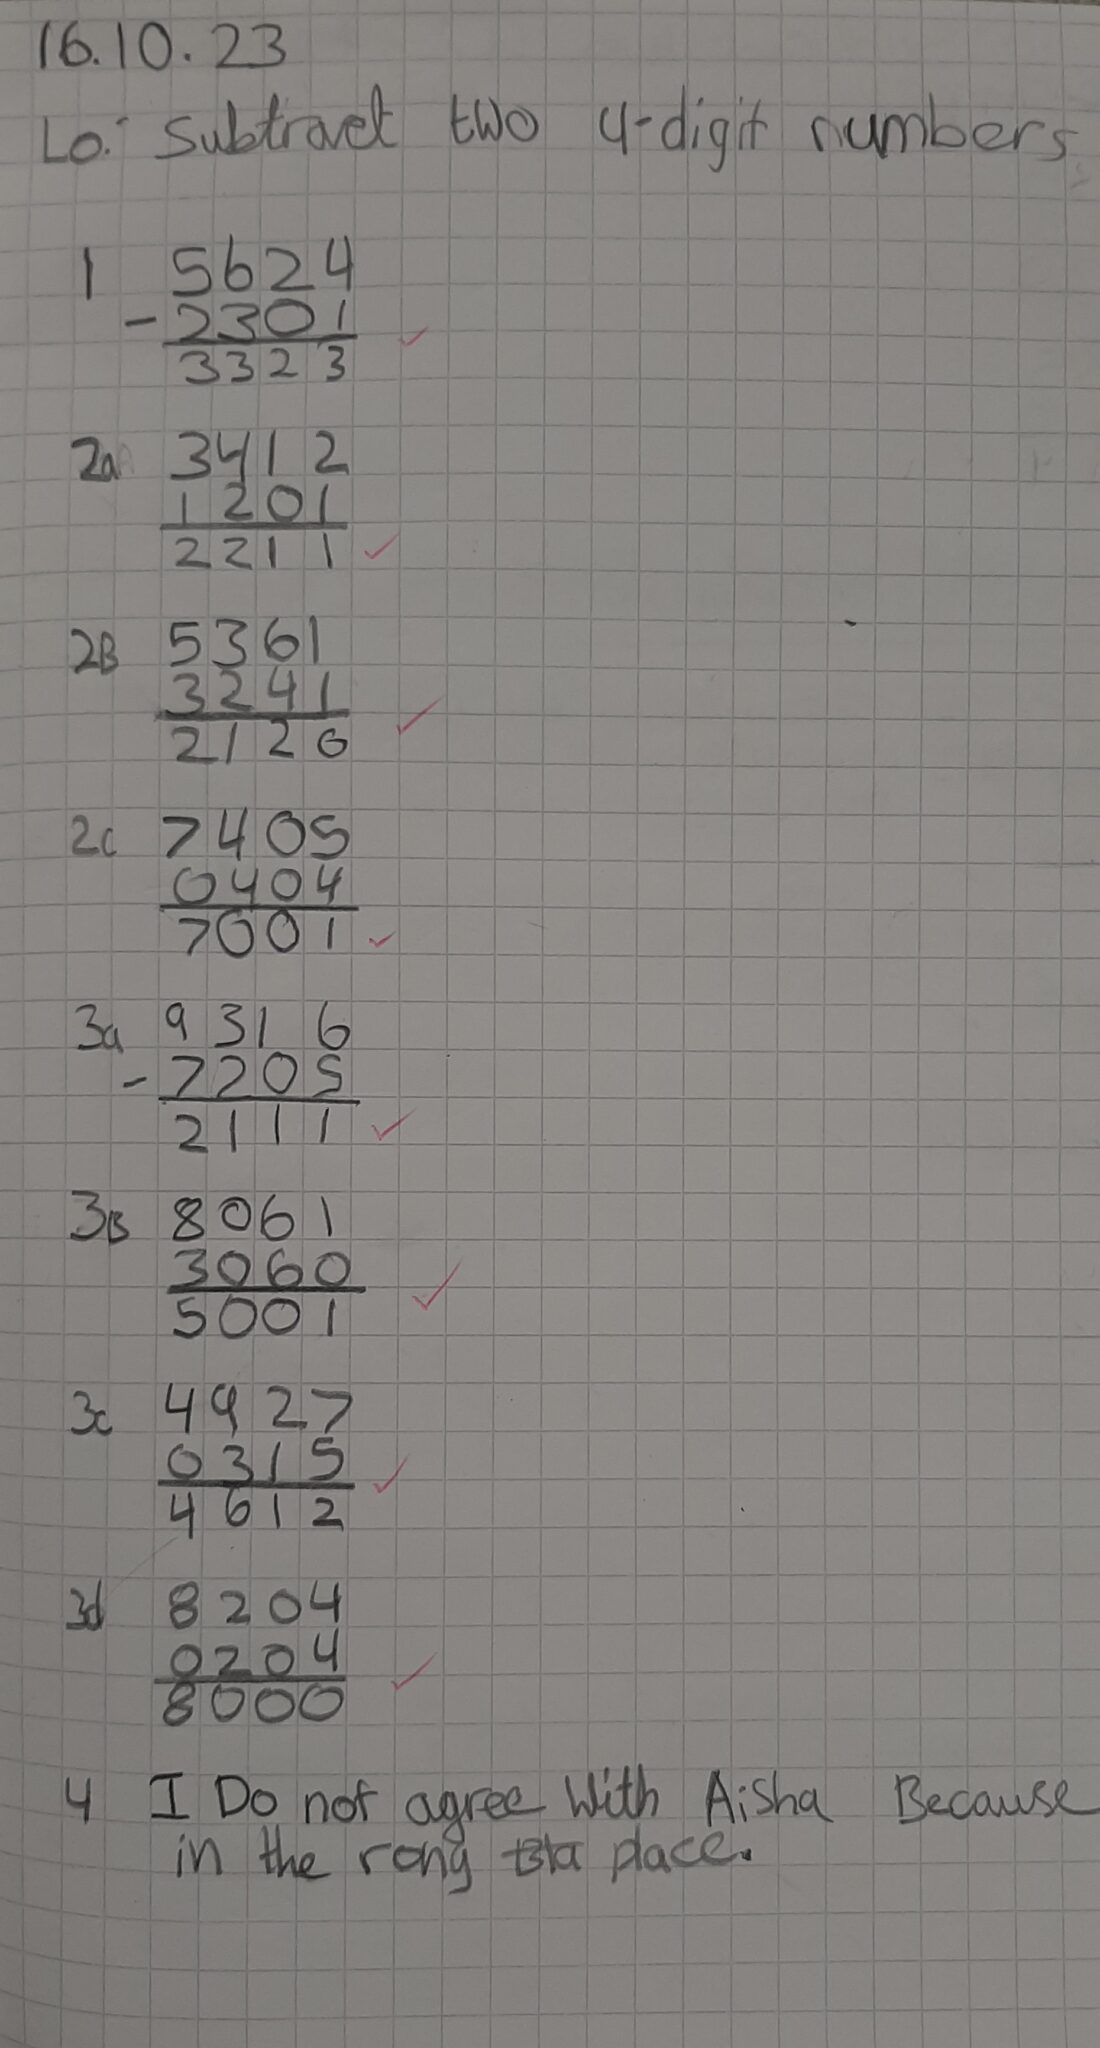 16.10.23
LO: Subtract two 4-digit numbers
1 5624
- 2301
3323
2a 3412
1201
2211
2B 5361
3241
2120
2c 7405
0404
7001
3a 9316
- 7205
2111
3B 8061
3060
5001
3c 4927
0315
4612
3d 8204
0204
8000
4 I Do not agree With Aisha Because
in the rong place.